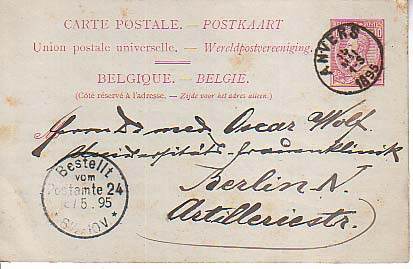 CARTE POSTALE. — POSTKAART
Union postale universelle. — Wereldpostvereeniging.
BELGIQUE. — BELGIE.
(Côté réservé à l'adresse. — Zijde voor het adres alleen.)
10
ANVERS
1895
Herrn Dr. med. Oscar Wolf.
Universitäts-Frauenklinik
Berlin N.
Artilleriestr.
Bestellt
vom
Postamte 24
5. 95